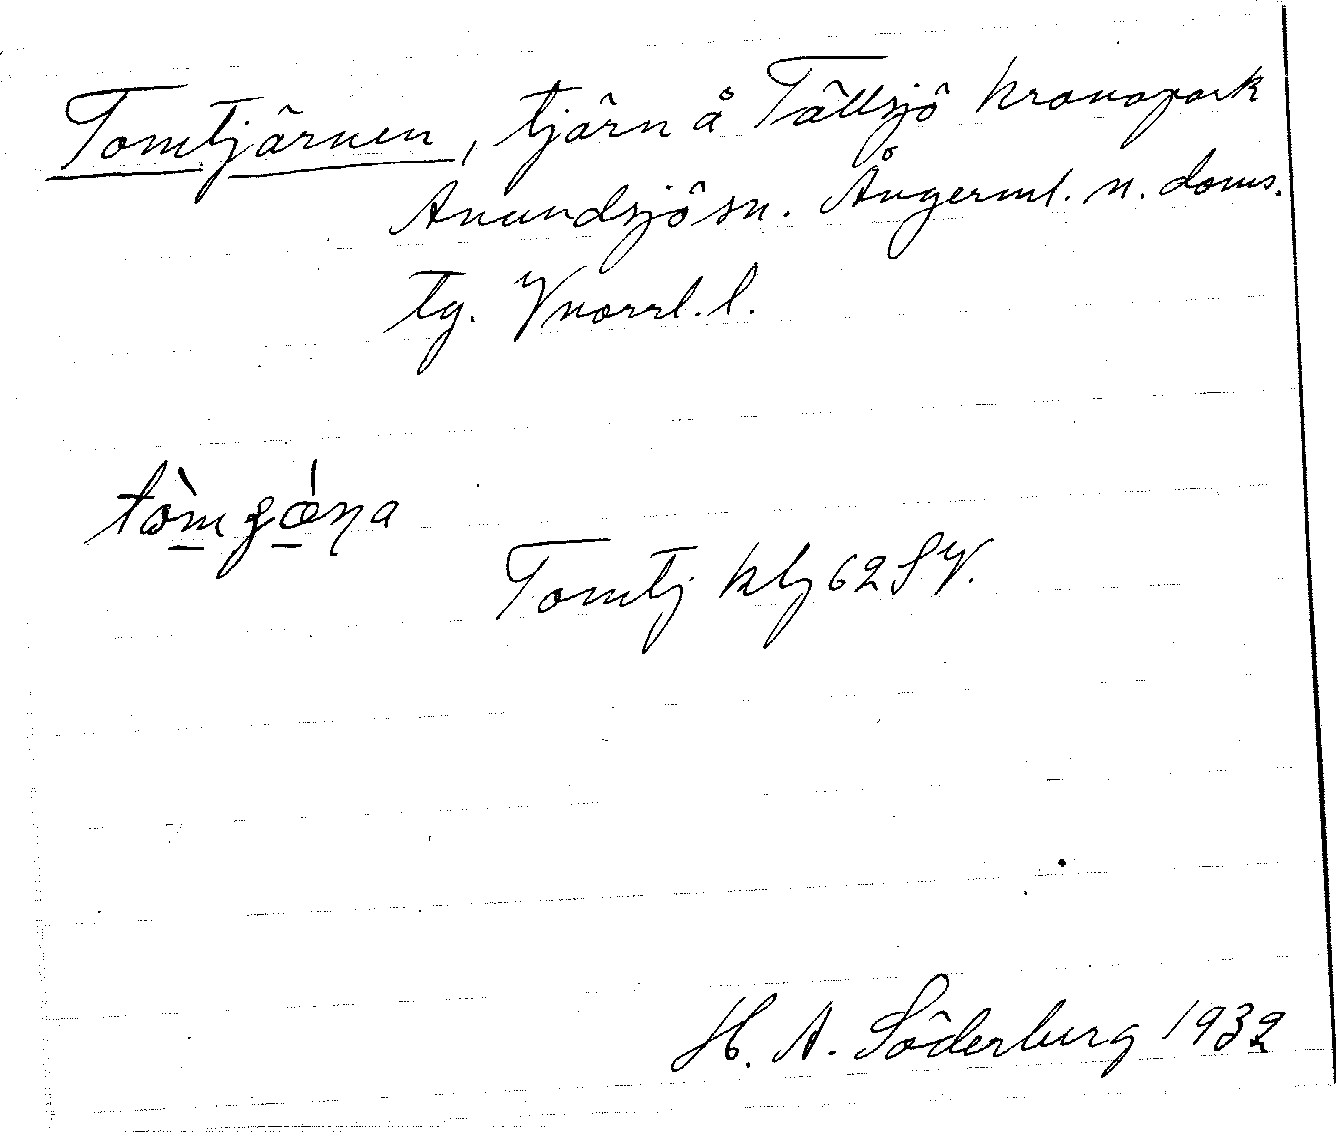 Tomtjärnen, tjärn å Tällsjö kronopark
Anundsjö sn. Ångerml. n. doms.
tg. Vnorrl. l.
tòmgǽna
Tomtj kbg 62 SV.
H. A. Söderburg 1932